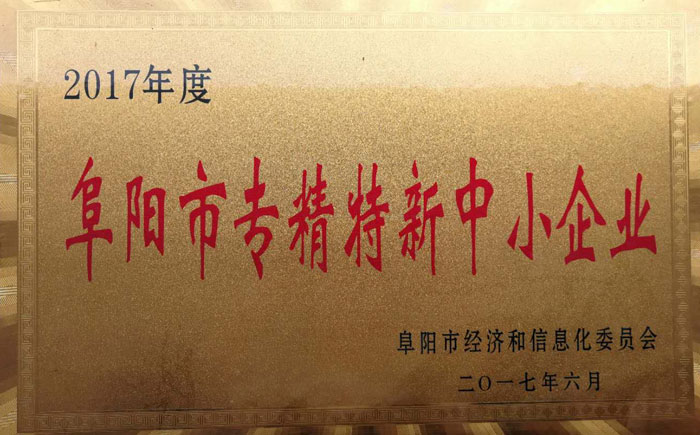 2017年度
阜阳市专精特新中小企业
阜阳市经济和信息化委员会
二〇一七年六月